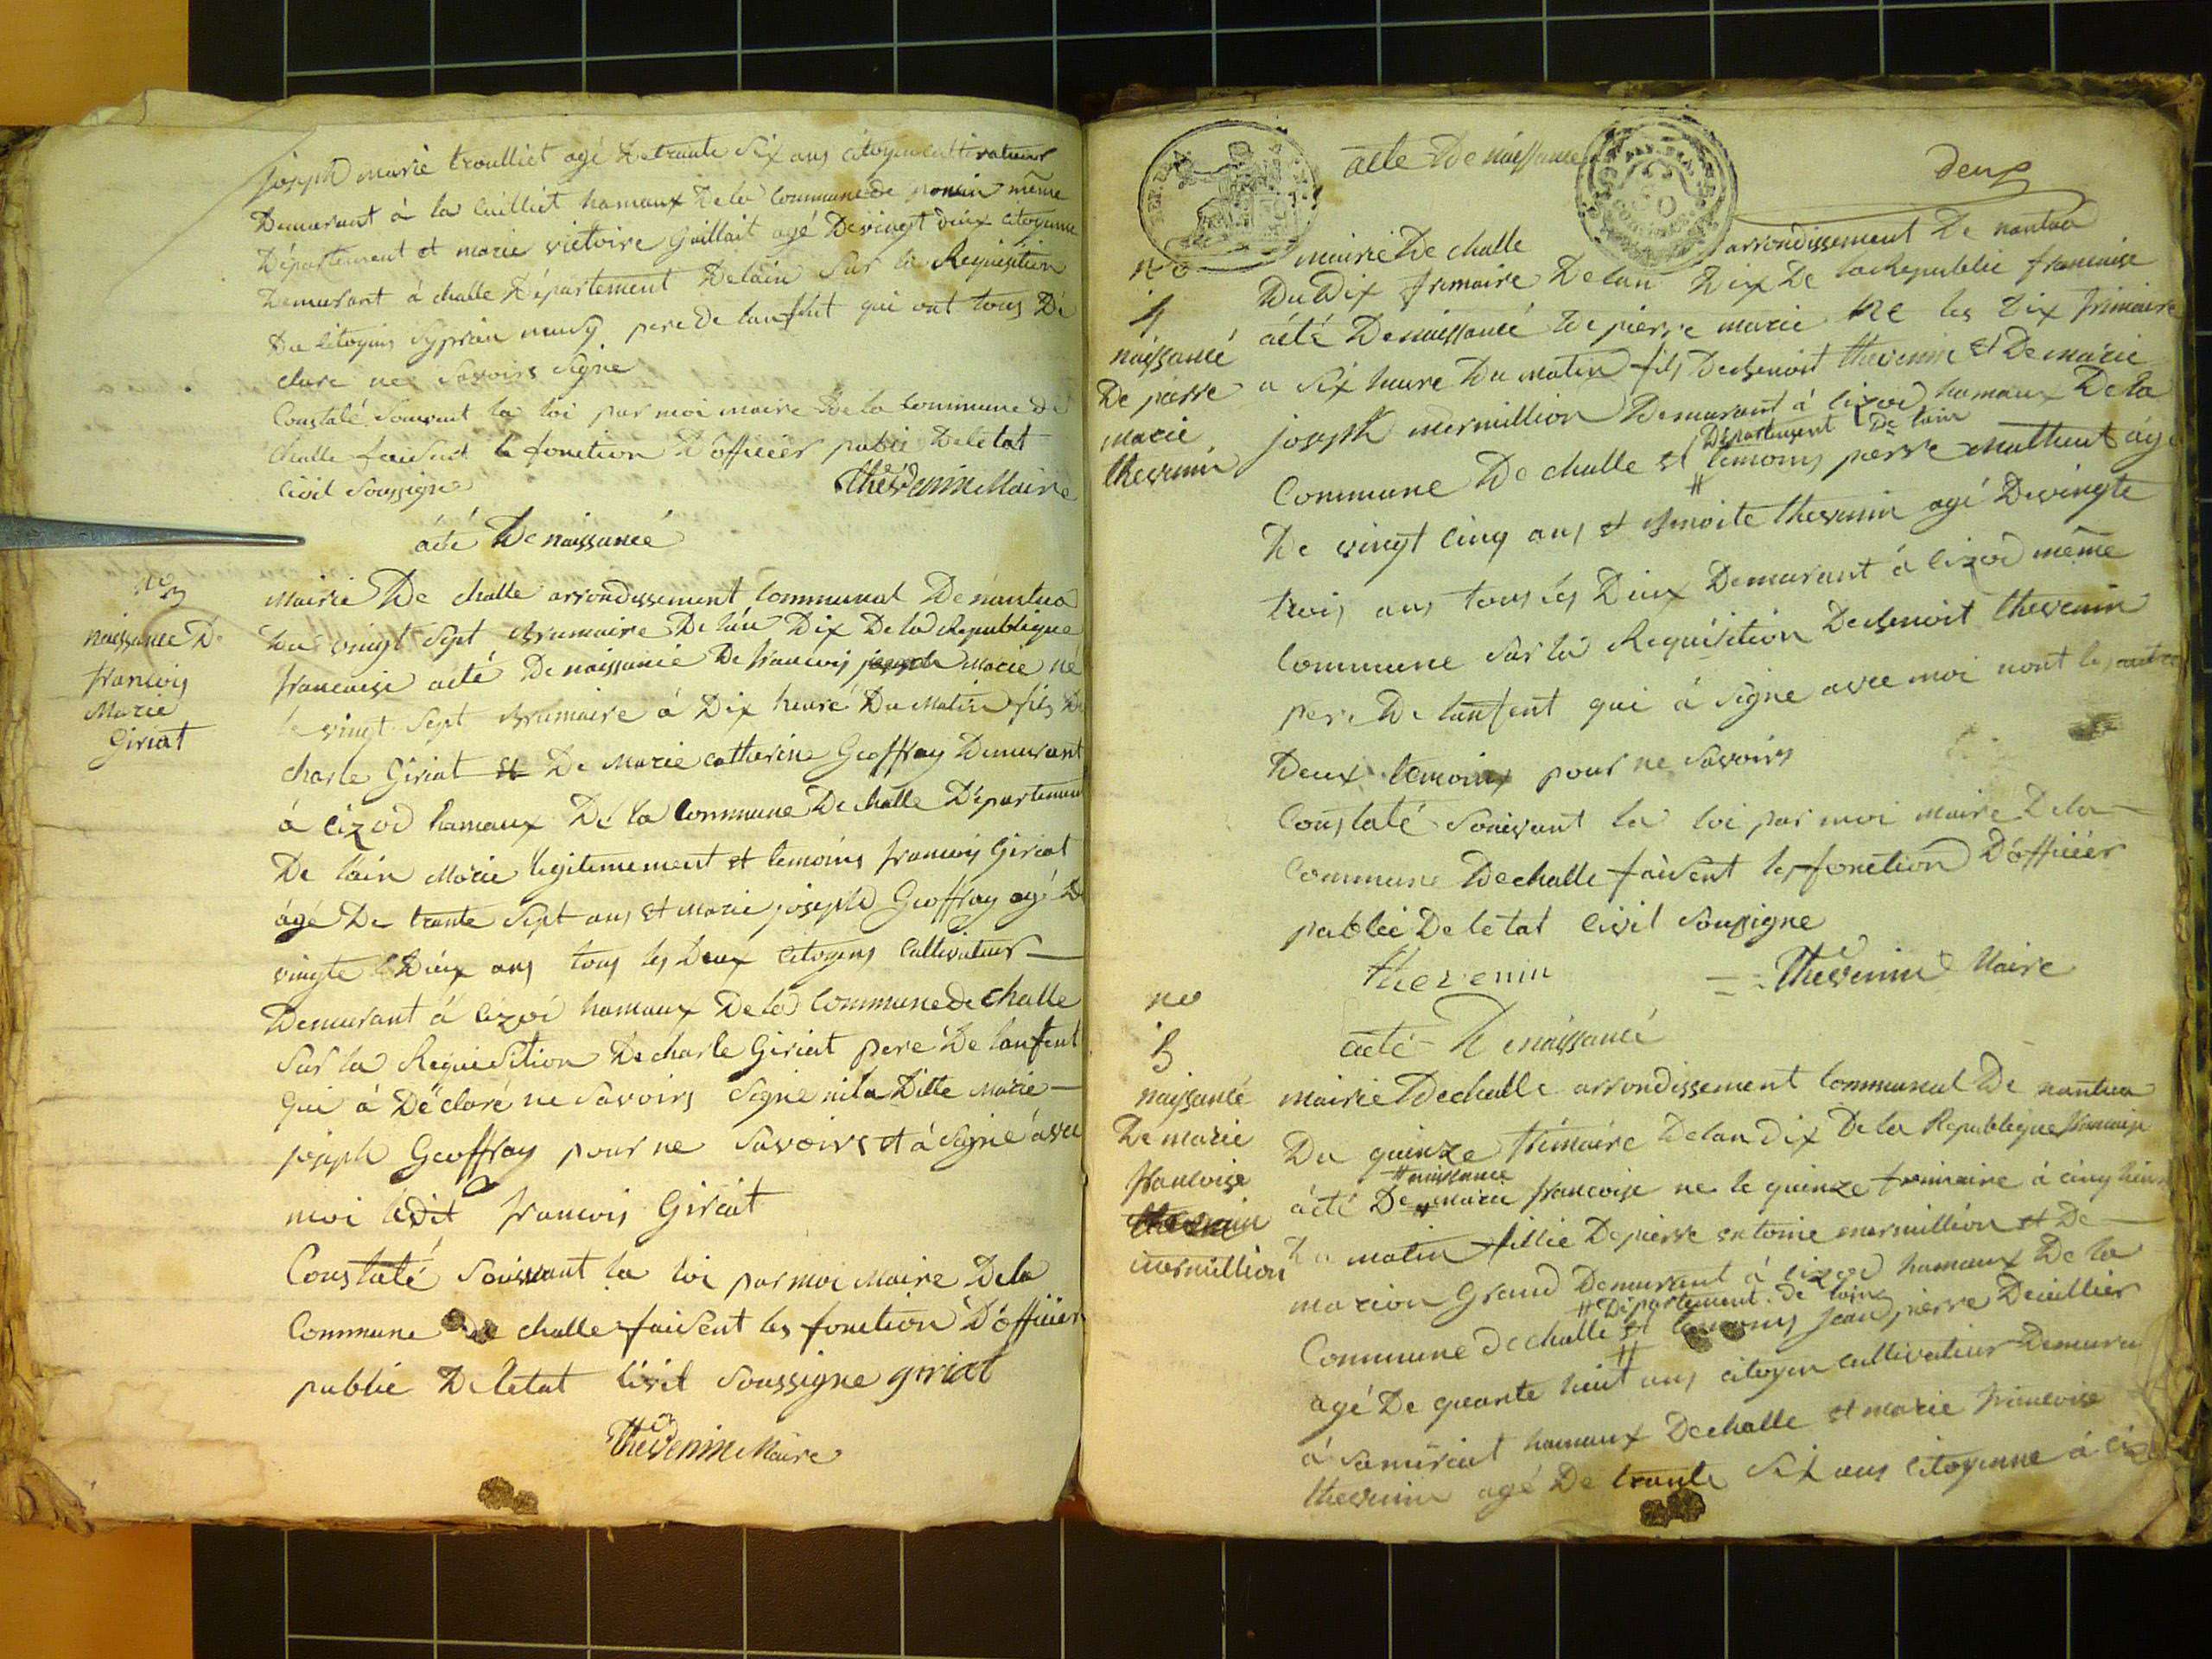 joseph marie troulliet agé de trante six ans citoyen cultivateur
Demurant à la Cuilliet hamaux De la Commune de même
Département et marie victoire Guillait agé De vingt deux citoyenne
Demurant à challe Département Delain sur la Requisition
Du citoyens Syprien pere de lanfent qui ont tous Dé
clare ne Savoirs Signe
Constaté Souvant la loi par moi maire De la Commune De
Challe faisent le fonction D'officier public De létat
Civil Soussigne Thévenin Maire
acté De naissancé
N° 3
naissance De
francois
Marie
Giriat
Mairie De challe arrondissement Communal De nantua
Du vingt Sept Brumaire De lan Dix De la Republique
francaise acté De naissancé De francois joseph Marie né
le vingt Sept Brumaire à Dix heuré Du Matin fils De
charle Giriat et De Marie catherine Geoffray Demurant
à Cizod hamaux Dé la Commune De challe Departement
De lain Marie legitimement et temoins francois Giriat
agé De trante Sept ans et Marie joseph Geoffray agé De
vingte Deux ans tous les Deux citoyens Cultivateur
Demurant à Cizod hamaux De la Commune de Challe
Sur la Requisition De charle Giriat peré De lanfent
qui à Déclaré ne Savoirs Signe ni la Ditte Marie
joseph Geoffray pour ne Savoirs et à Signé avec
moi ledit francois Giriat
Constaté Souvant la loi par moi Maire De la
Commune De challe faisent les fonction D'officier
public De létat Civil Soussigne giriat
Thevenin Maire
acte De naissance
deux
mairie De challe arrondissement De nantua
n°
4
naissancé
De pierre
Marie
thevenin
Du Dix frimaire De lan Dix De la Republic francaise
acté De naissancé De pierre marie né les Dix frimaire
a Six heure Du matin fils De Benoist thevenin et De marie
joseph mermillion Demurant à Cizod hamaux De la
Département De lain
Commune De challe et temoins pierre Mathieut agé
De vingt cinq ans et Benoite thevenin agé De vingte
trois ans tous les Deux Demurant à Cizod même
Commune Sur la Requisition De Benoit thevenin
pere De lanfent qui à Signe avec moi nont les autre
Deux temoins pour ne Savoirs
Constaté Souivant la loi par moi Maire De la
Commune De challe faisent les fonction D'officier
public De létat Civil Soussigne
thevenin Thevenin Maire
n°
5
naissancé
De marie
francoise
thevenin
mermillion
acté De naissancé
mairie De challe arrondissement Communal De nantua
Du quinze frimaire De lan dix De la Republique francaise
naissance
acté De marie francoise ne le quinze frimaire à cinq heure
Du matin fillie De pierre entoine mermillion et De
marion Grand Demurant à Cizod hamaux De la
Département de lain
Commune De challe et temoins jean pierre Decuillier
agé De quarante huit ans citoyen cultivateur Demura
à hamaux De challe et marie francoise
thevenin agé De trante Six ans Citoyenne à Cizod